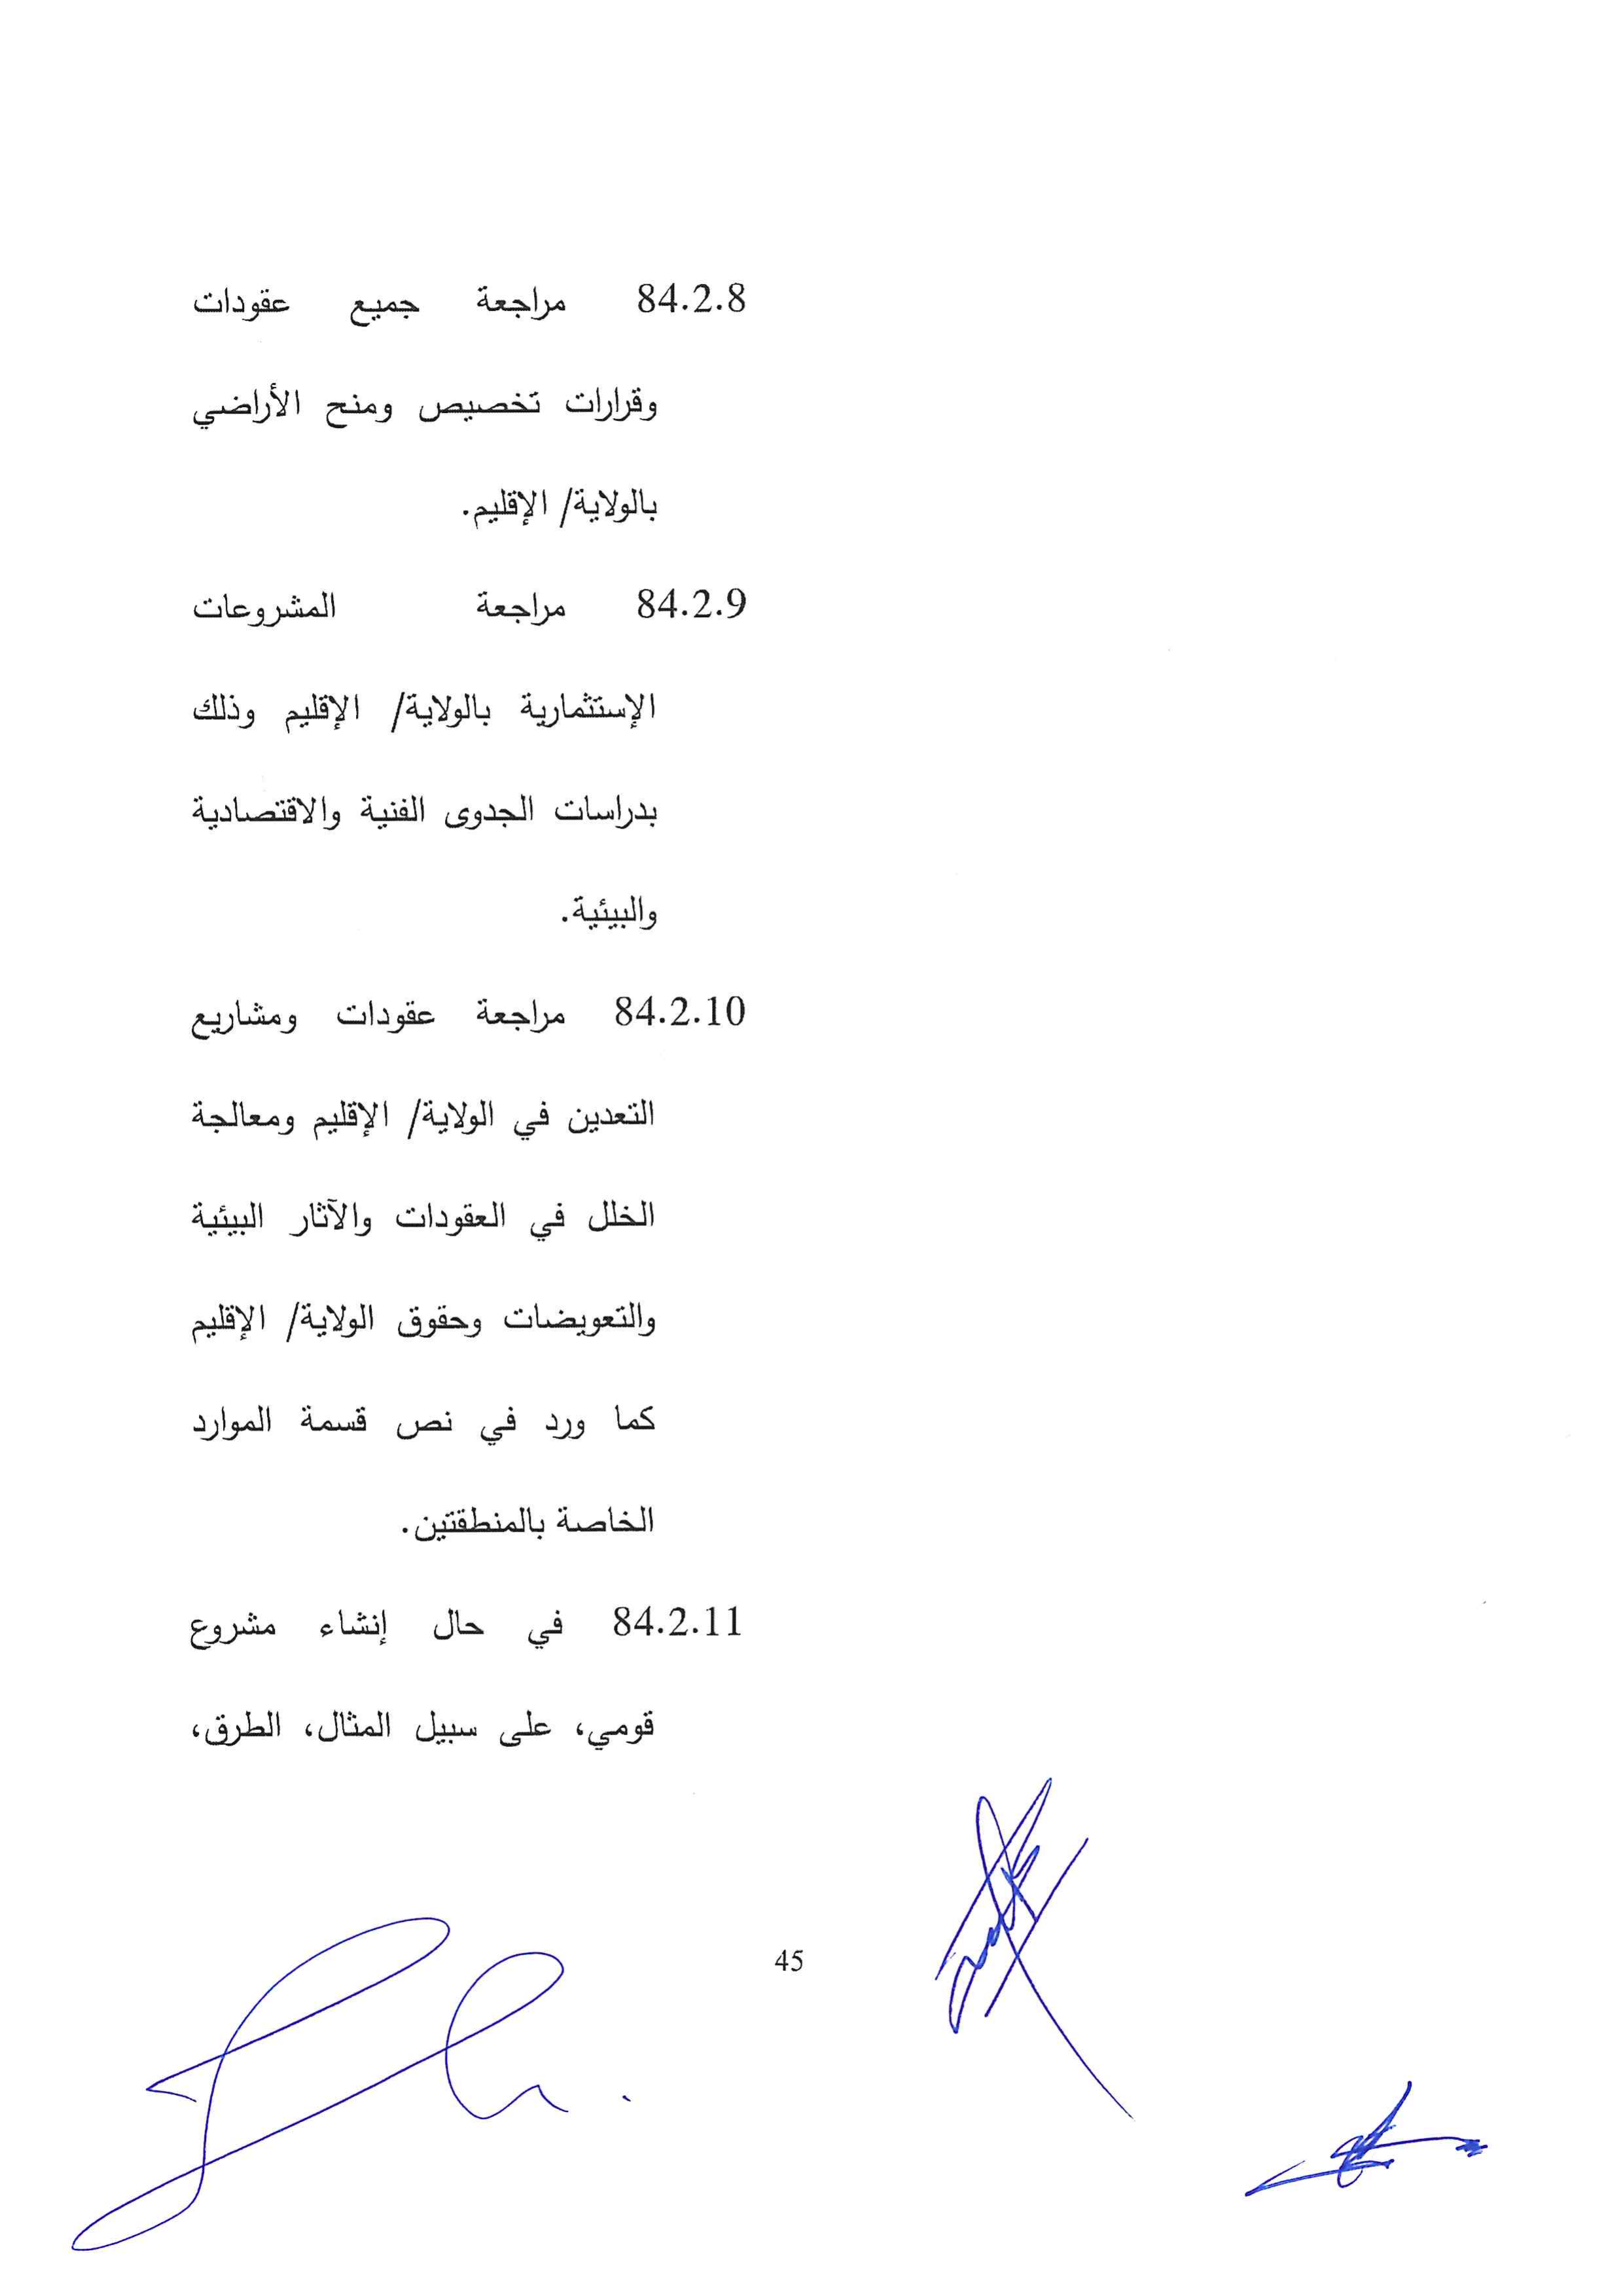 84.2.8 مراجعة جميع عقودات
وقرارات تخصيص ومنح الأراضي
بالولاية/ الإقليم.
84.2.9 مراجعة المشروعات
الإستثمارية بالولاية/ الإقليم وذلك
بدراسات الجدوى الفنية والاقتصادية
والبيئية.
84.2.10 مراجعة عقودات ومشاريع
التعدين في الولاية/ الإقليم ومعالجة
الخلل في العقودات والآثار البيئية
والتعويضات وحقوق الولاية/ الإقليم
كما ورد في نص قسمة الموارد
الخاصة بالمنطقتين.
84.2.11 في حال إنشاء مشروع
قومي، على سبيل المثال، الطرق،
45